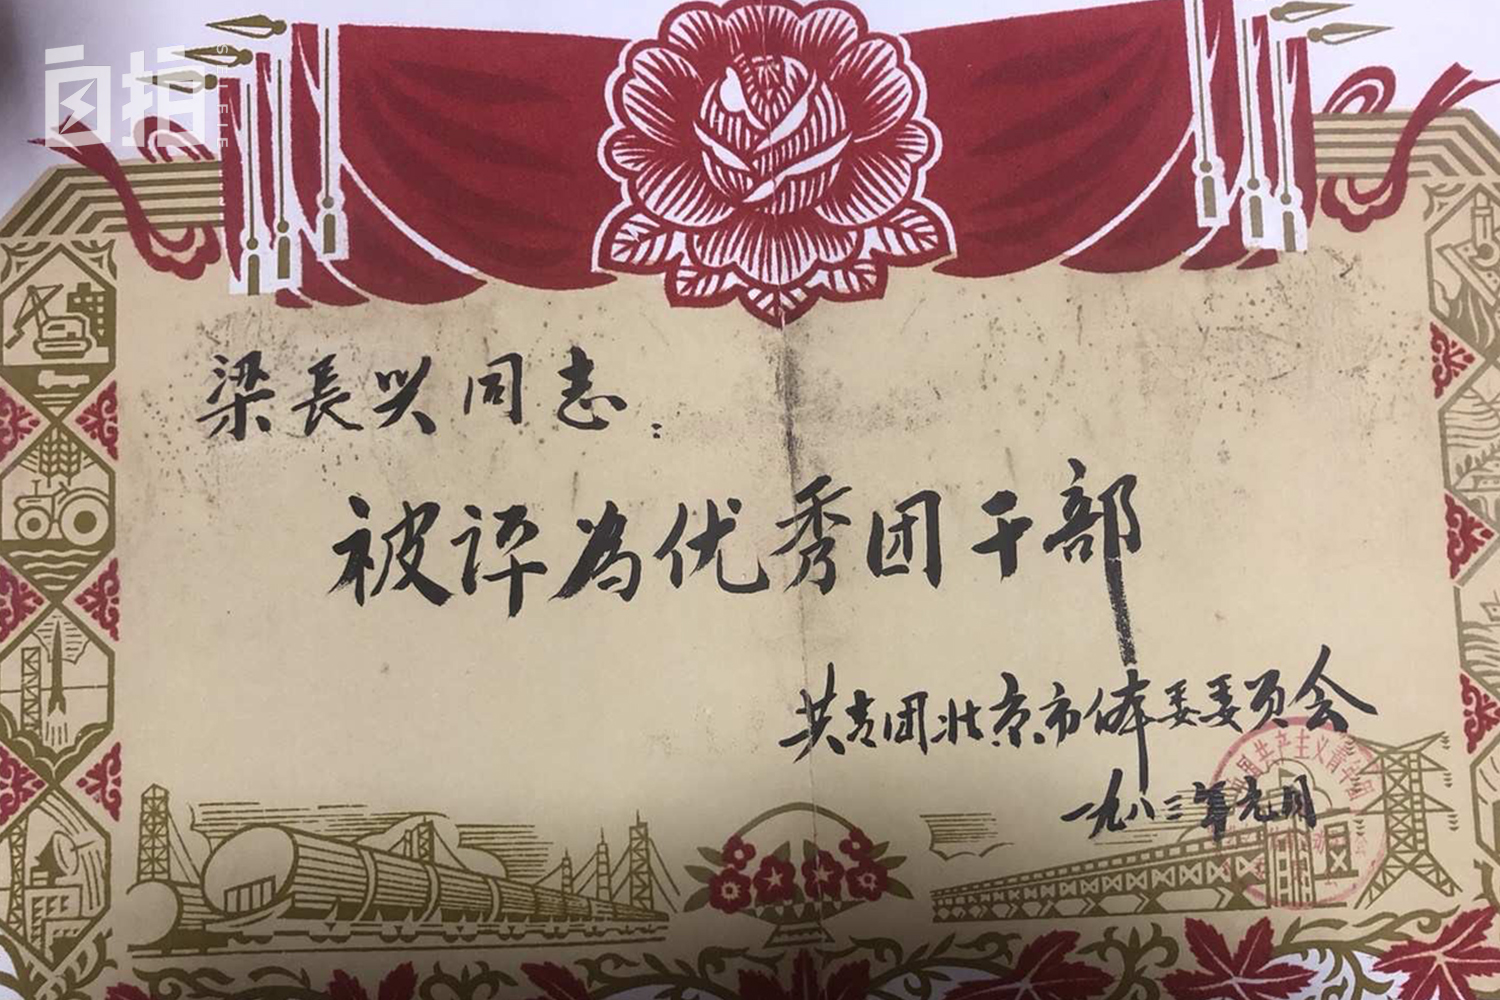 自拍
SELFIE
梁長兴同志：
被评为优秀团干部
共青团北京市体委委员会
一九八三年元月
国共产主义青年团